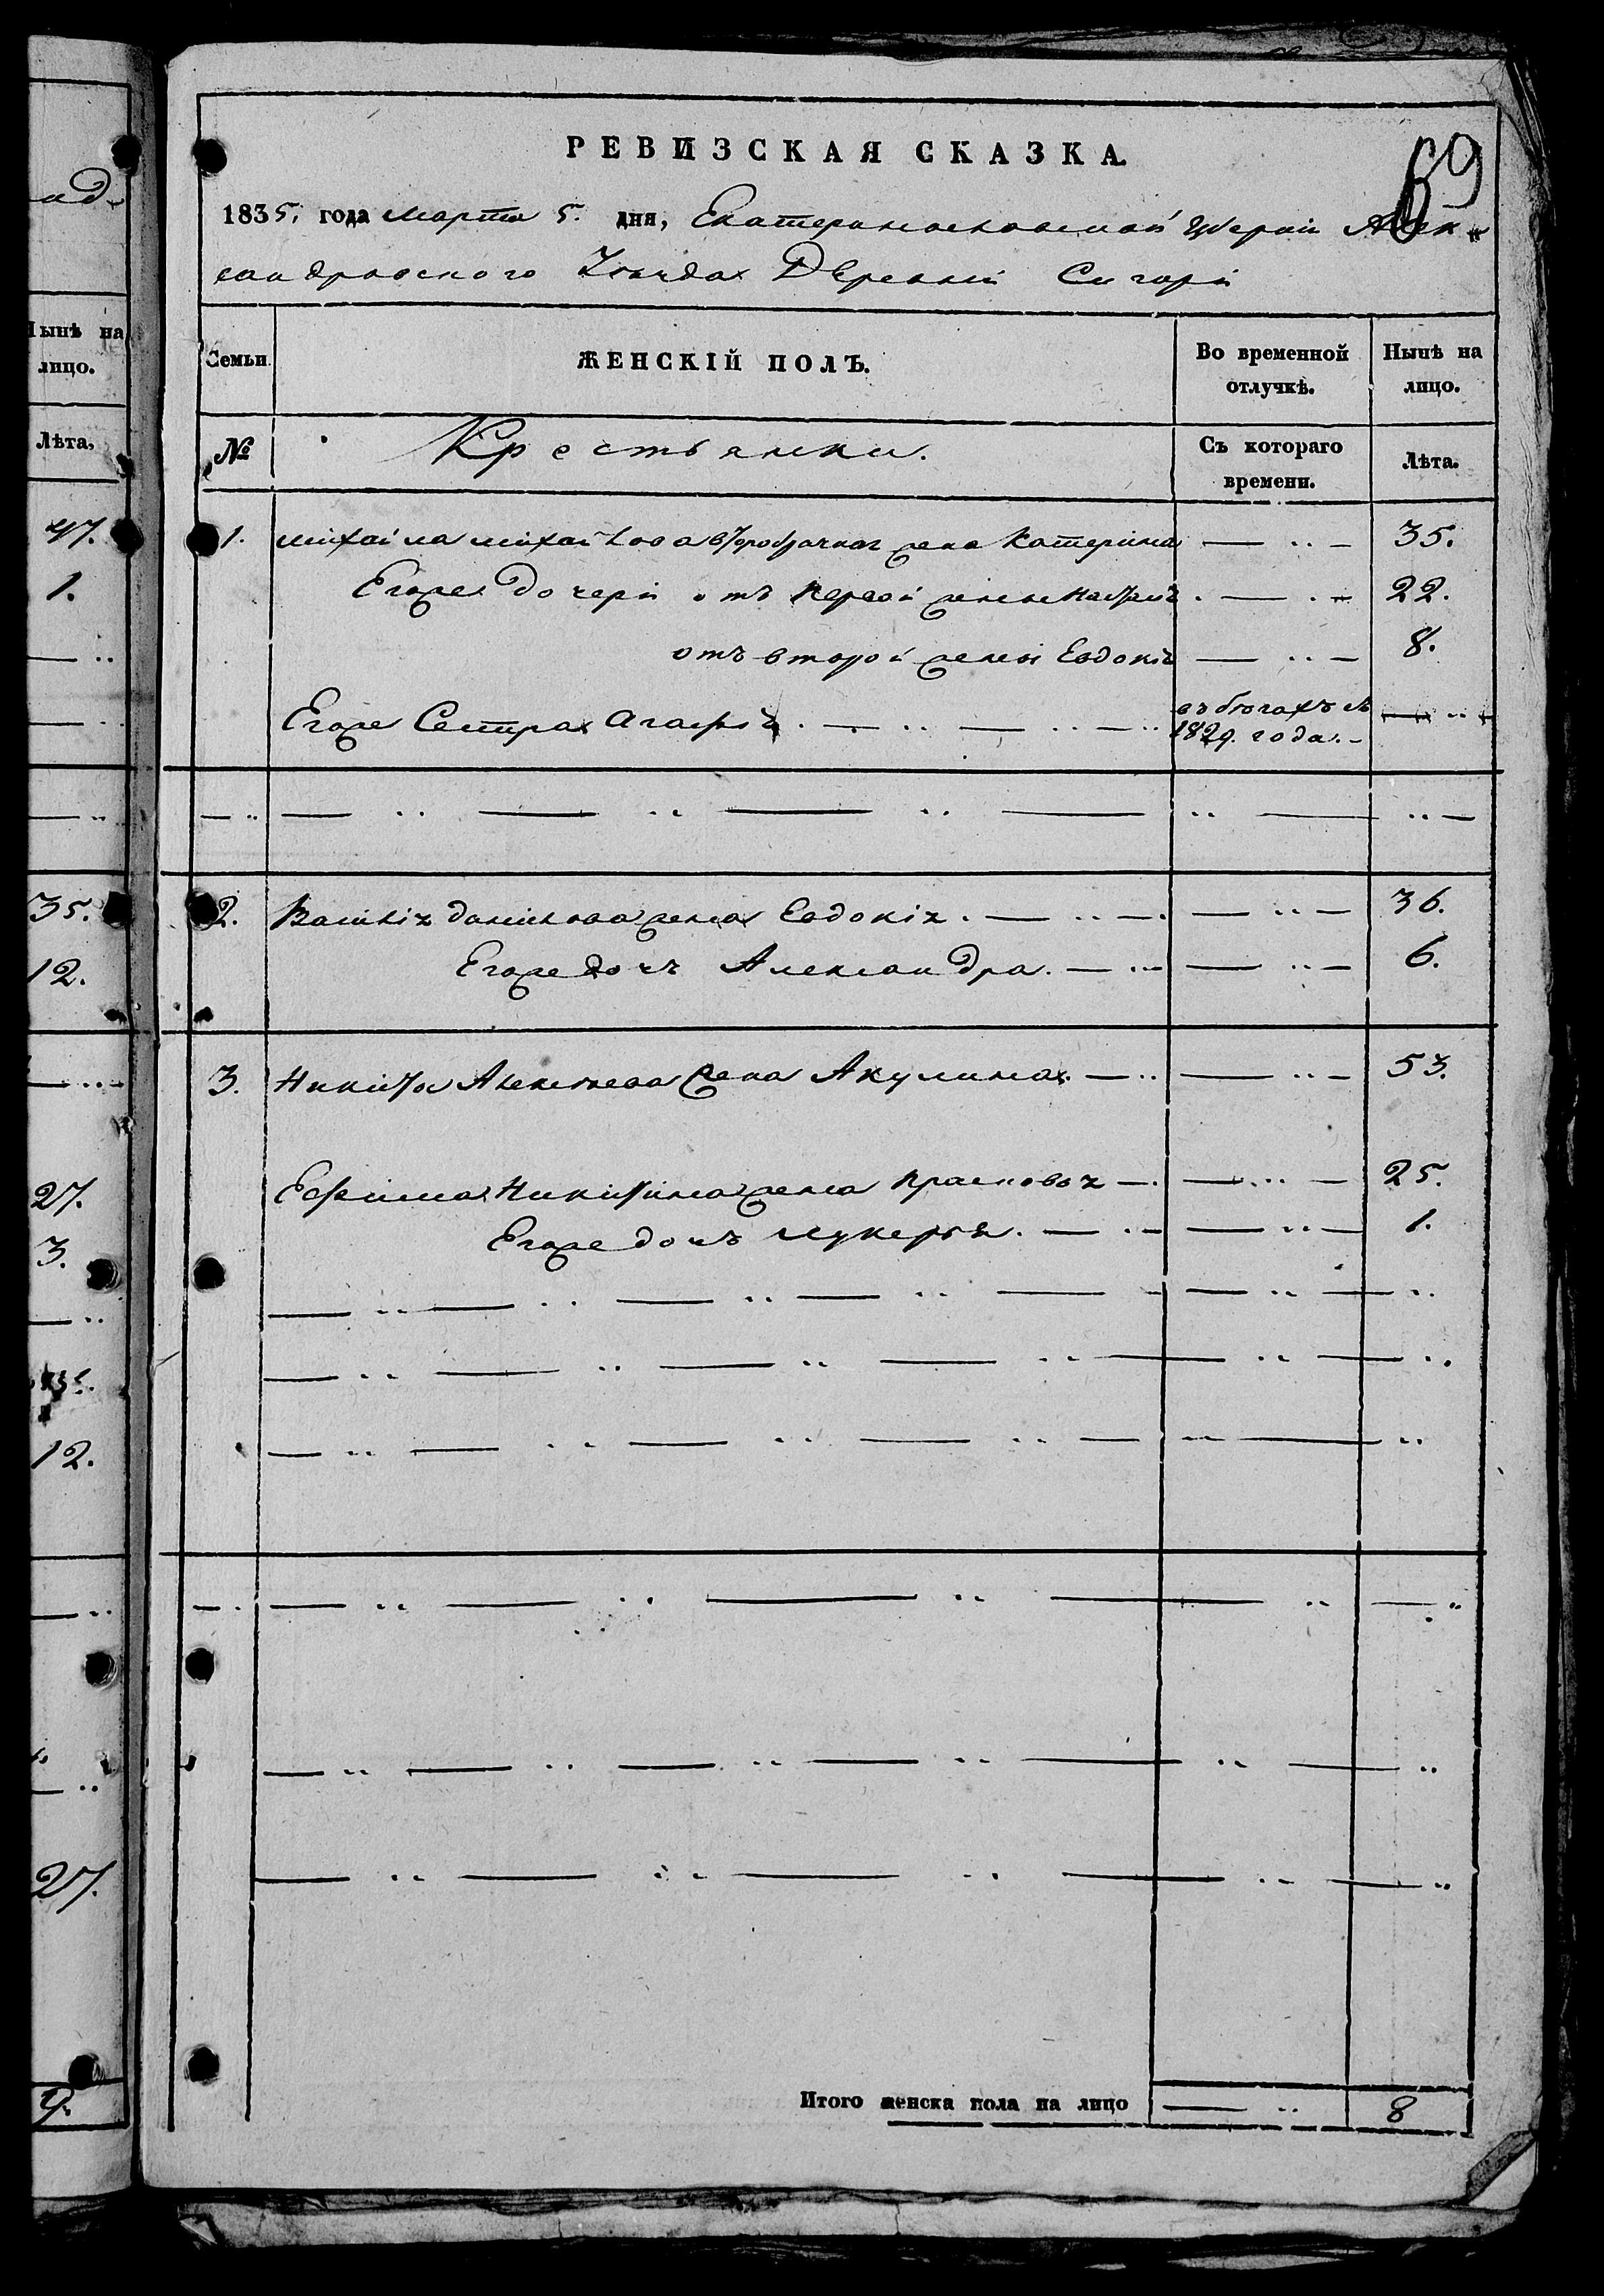 ад-
Нынѣ на
лицо.
Лѣта,
47.
1.
35.
12.
27.
3.
12.
27.
9.
РЕВИЗСКАЯ СКАЗКА.
69
1835, года Марта 5. дня, Екатеринославской Губерніи Алек
сандровского Уѣзда Деревни
Семьи
ЖЕНСКІЙ ПОЛЪ.
Во временной
отлучкѣ.
Нынѣ на
лицо.
№
Крестьянки.
Съ котораго
времени.
Лѣта.
1. Михайла Михайлова второбрачная жена Катерина — .. — 35.
Егоже дочери отъ первой жены . — . — 22.
отъ второй жены Евдокія — .. — 8.
Егоже Сестра Агафія . — .. — .. — .. въ бегахъ съ
1829. года. — .. —
2. Василія Данилова жена Евдокія . — .. — . — .. — 36.
Егоже дочь Александра. — .. — — .. — 6.
3. Никиты Алексеева жена Акулина. — .. — .. — 53.
Ефима Никитина жена Прасковья — . — ... — 25.
Егоже дочь Лукерья. — .. — — .. — 1.
Итого женска пола на лицо — .. 8